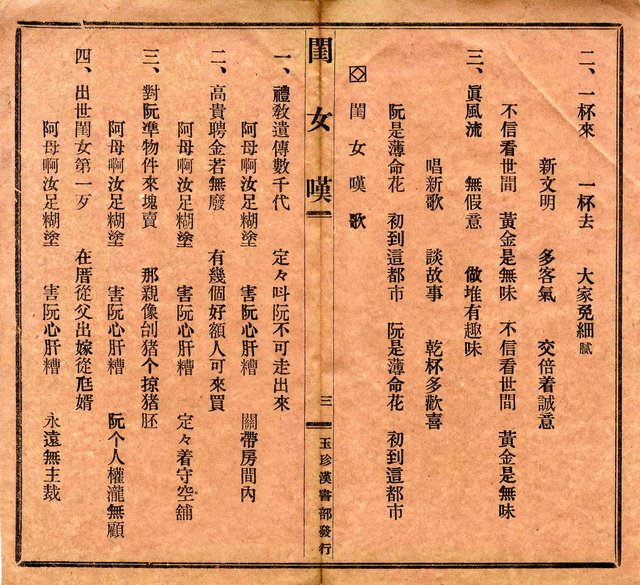 二、一杯來　一杯去　大家免細膩
新文明　多客氣　交倍着誠意
不信看世間　黃金是無味　不信看世間　黃金是無味
三、眞風流　無假意　做堆有趣味
唱新歌　談故事　乾杯多歡喜
阮是薄命花　初到這都市　阮是薄命花　初到這都市
閨女嘆歌
閨女嘆
三
玉珍漢書部發行
一、禮敎遺傳數千代　定々叫阮不可走出來
阿母啊汝足糊塗　害阮心肝糟　關帶房間內
二、高貴聘金若無廢　有幾個好額人可來買
阿母啊汝足糊塗　害阮心肝糟　定々着守空舖
三、對阮準物件來塊賣　那親像刣猪个掠猪胚
阿母啊汝足糊塗　害阮心肝糟　阮个人權瀧無顧
四、出世閨女第一歹　在厝從父出嫁從尫婿
阿母啊汝足糊塗　害阮心肝糟　永遠無主裁